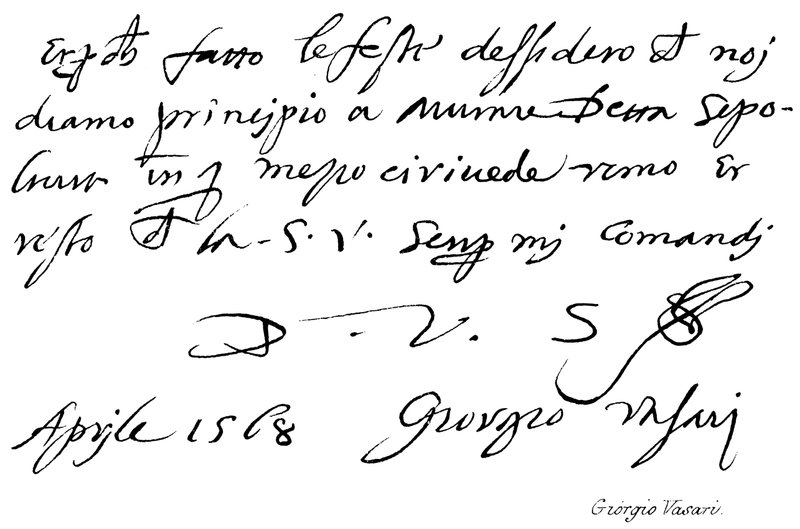 fatto le feste dessidero noj
diamo principio a murare Detta Sepo-
in mezzo ci rivederemo Et
resto la S. V. Senp mj Comandj
D. V. S
Aprile 1568 Giorgio Vasarj
Giorgio Vasari.